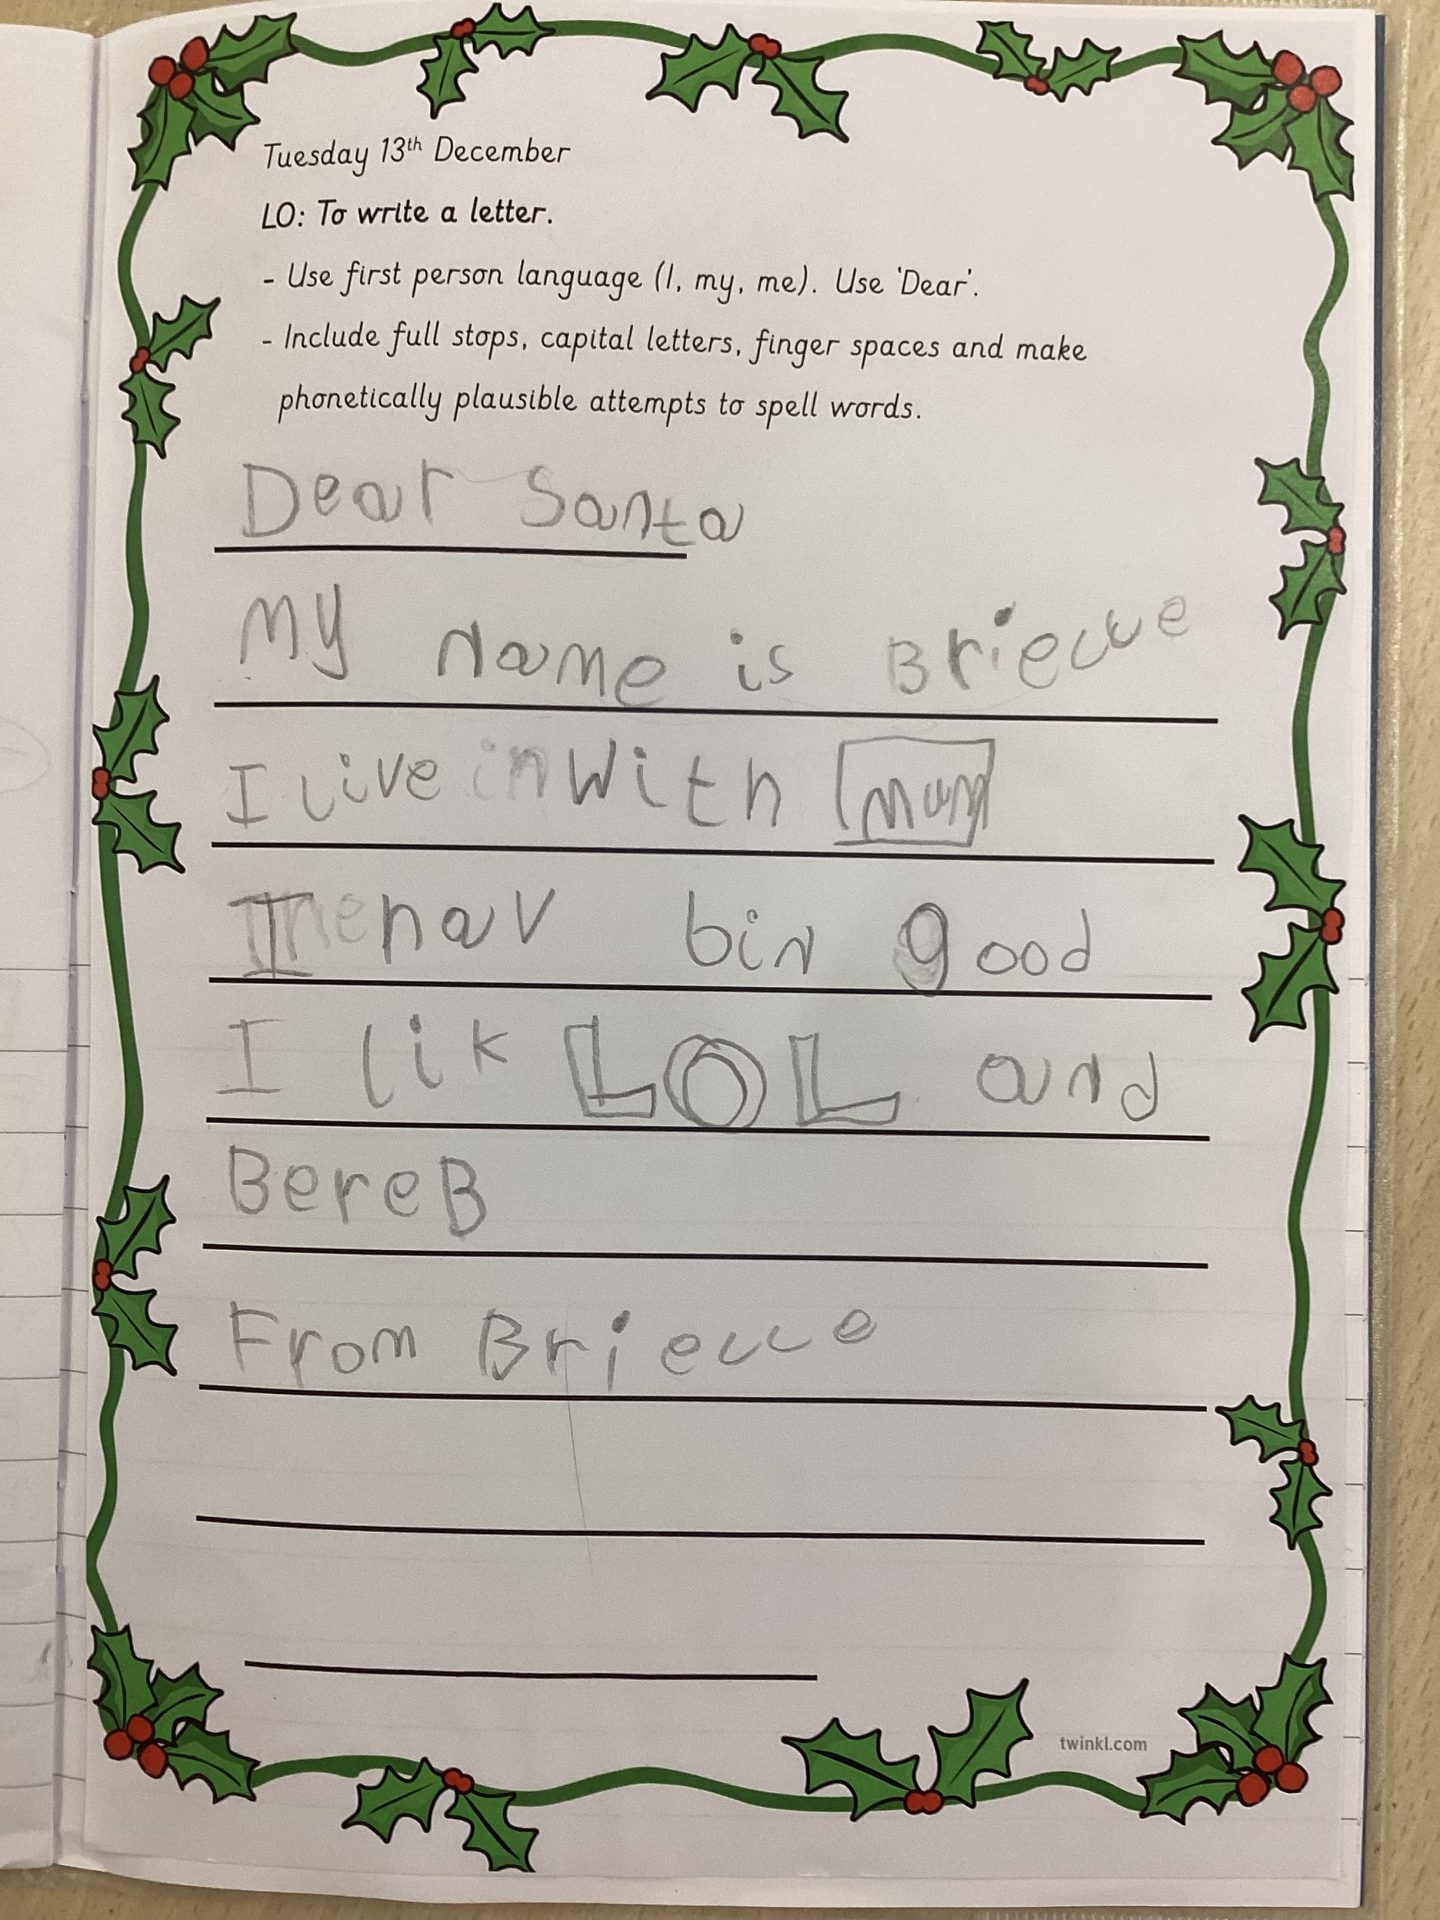 Tuesday 13th December
LO: To write a letter.
- Use first person language (I, my, me). Use 'Dear'.
- Include full stops, capital letters, finger spaces and make
phonetically plausible attempts to spell words.
Dear Santa
My name is Brielle
I live with mum
I hav bin good
I lik LOL and
BereB
From Brielle
twinkl.com